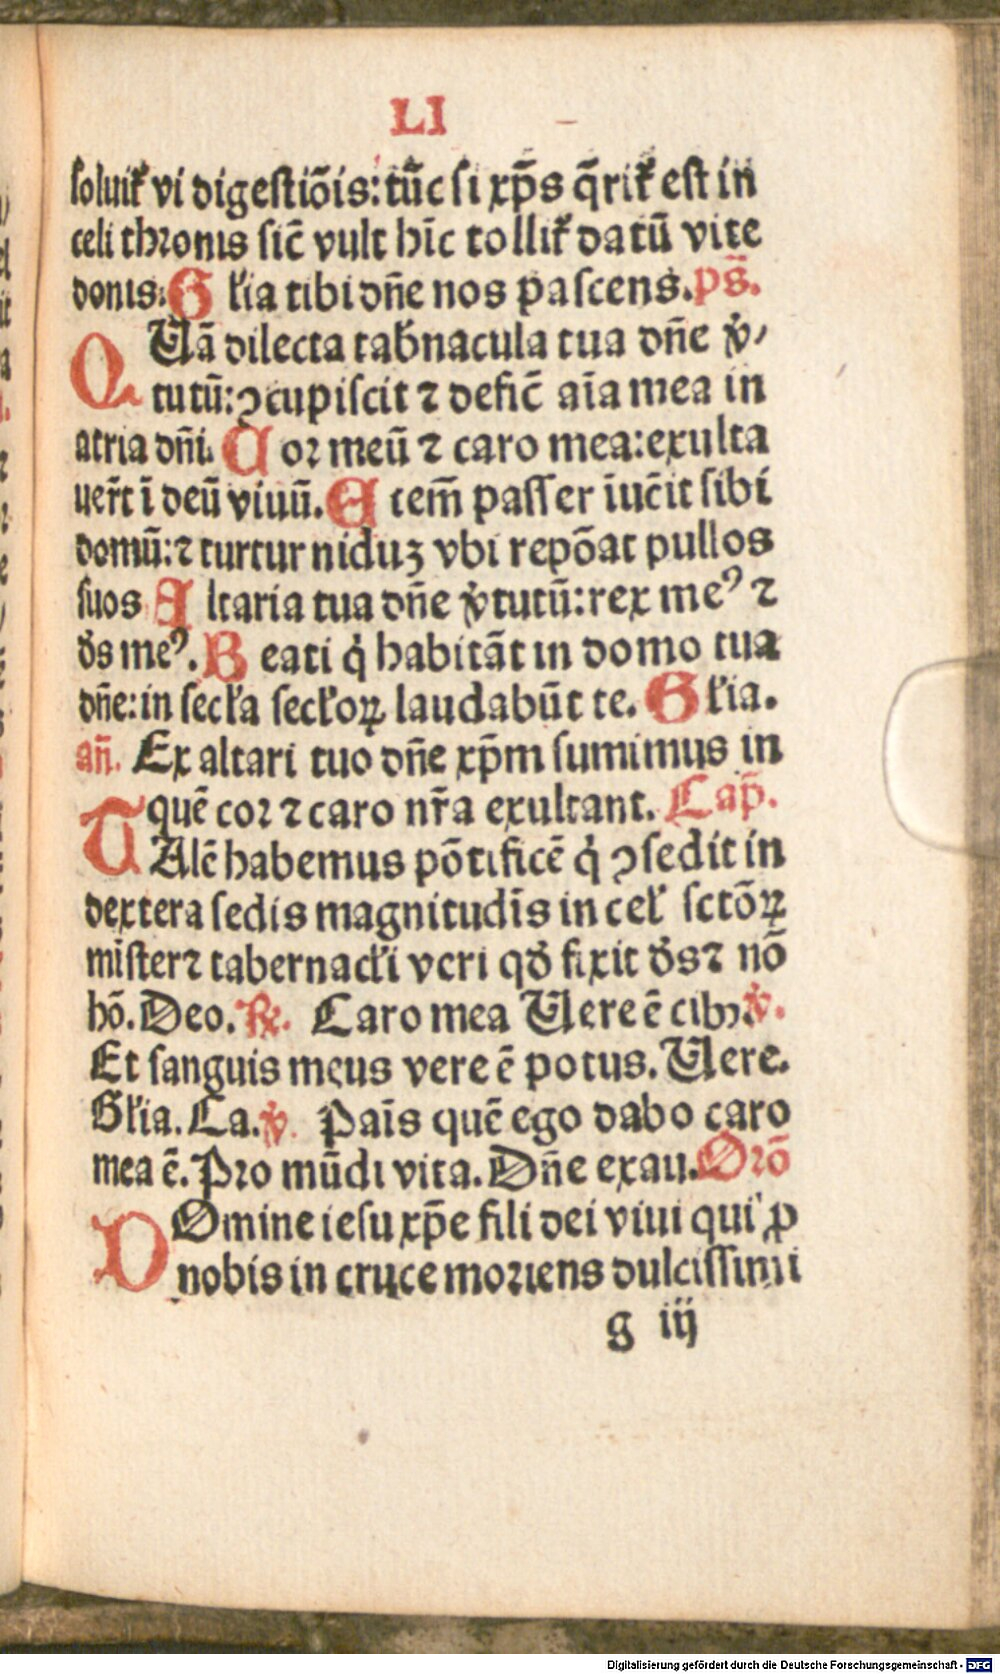 LI
soluit̃ vi digestiõis: tũc si xp̃s q̃rit̃ est in
celi thronis sic̃ vult hĩc tollit̃ datũ vite
donis. Gl̃ia tibi dñe nos pascens. ps̃.
QUã dilecta tab̃nacula tua dñe v̾
tutũ: ꝯcupiscit ⁊ defic̃ aĩa mea in
atria dñi. Cor meũ ⁊ caro mea: exulta
uer̃t ĩ deũ viuũ. Etem̃ passer ĩuẽit sibi
domũ: ⁊ turtur niduꝫ vbi repõat pullos
suos Altaria tua dñe v̾tutũ: rex meꝰ ⁊
ds̃ meꝰ. Beati q̇ habitãt in domo tua
dñe: in secl̃a secl̃oꝝ laudabũt te. Gl̃ia.
añ. Ex altari tuo dñe xp̃m sumimus in
quẽ cor ⁊ caro nr̃a exultant. Cap̃.
TAlẽ habemus põtificẽ q̇ ꝯsedit in
dextera sedis magnitudĩs in cel̃ sctõꝝ
mĩster⁊ tabernacl̃i veri qd̃ fixit ds̃⁊ nõ
hõ. Deo. ℟. Caro mea Uere ẽ cibꝰ. ℣.
Et sanguis meus vere ẽ potus. Uere.
Gl̃ia. Ca. ℣. Paĩs quẽ ego dabo caro
mea ẽ. Pro mũdi vita. Dñe exau. Orõ
DOmine iesu xp̃e fili dei viui qui ꝓ
nobis in cruce moriens dulcissimi
g iij
Digitalisierung gefördert durch die Deutsche Forschungsgemeinschaft - DFG